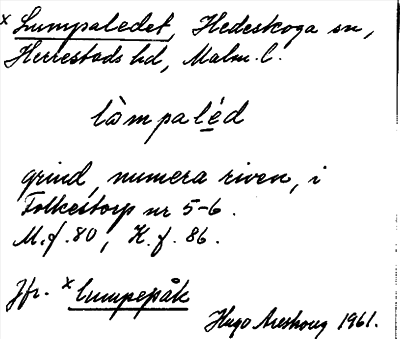 x Lumpaledet, Hedeskoga sn,
Herrestads hd, Malm. l.
làmpaléd
grind, numera riven, i
Folkestorp nr 5-6.
M.f. 80, K.f. 86.
Jfr. x Lumpepåk
Hugo Areskoug 1961.